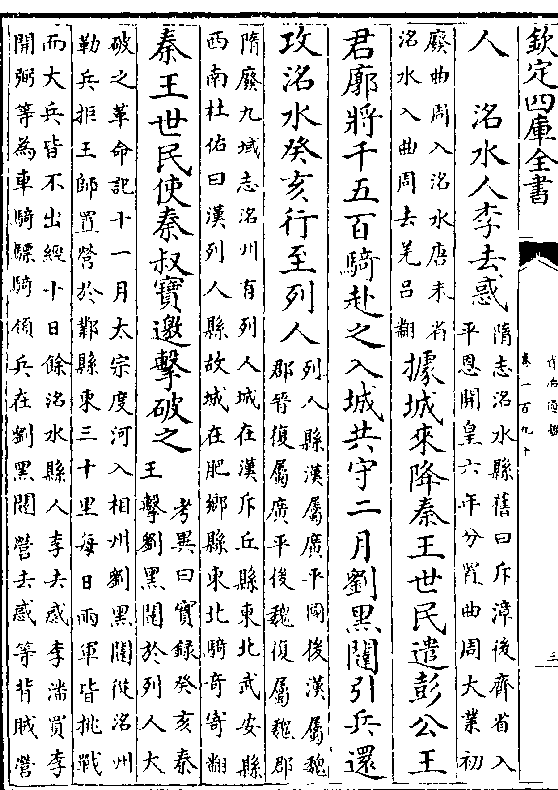 欽定四庫全書
卷一百九十
三
人　洺水人李去惑
隋志洺水縣舊曰斥漳後齊省入
平恩開皇六年分置曲周大業初
廢曲周入洺水唐末省
洺水入曲周去羌呂翻
據城來降秦王世民遣彭公王
君廓將千五百騎赴之入城共守二月劉黑闥引兵還
攻洺水癸亥行至列人
列人縣漢屬廣平國後漢屬魏
郡晉復屬廣平後魏復屬魏郡
隋廢九域志洺州有列人城在漢斥丘縣東北武安縣
西南杜佑曰漢列人縣故城在肥鄉縣東北騎奇寄翻
秦王世民使秦叔寶邀擊破之
考異曰實錄癸亥秦
王擊劉黑闥於列人大
破之革命記十一月太宗度河入相州劉黑闥從洺州
勒兵拒王師置營於鄴縣東三十里每日兩軍皆挑戰
而大兵皆不出經十日餘洺水縣人李去惑李潘買李
開弼等為車騎驃騎領兵在劉黑闥營去惑等背賊營